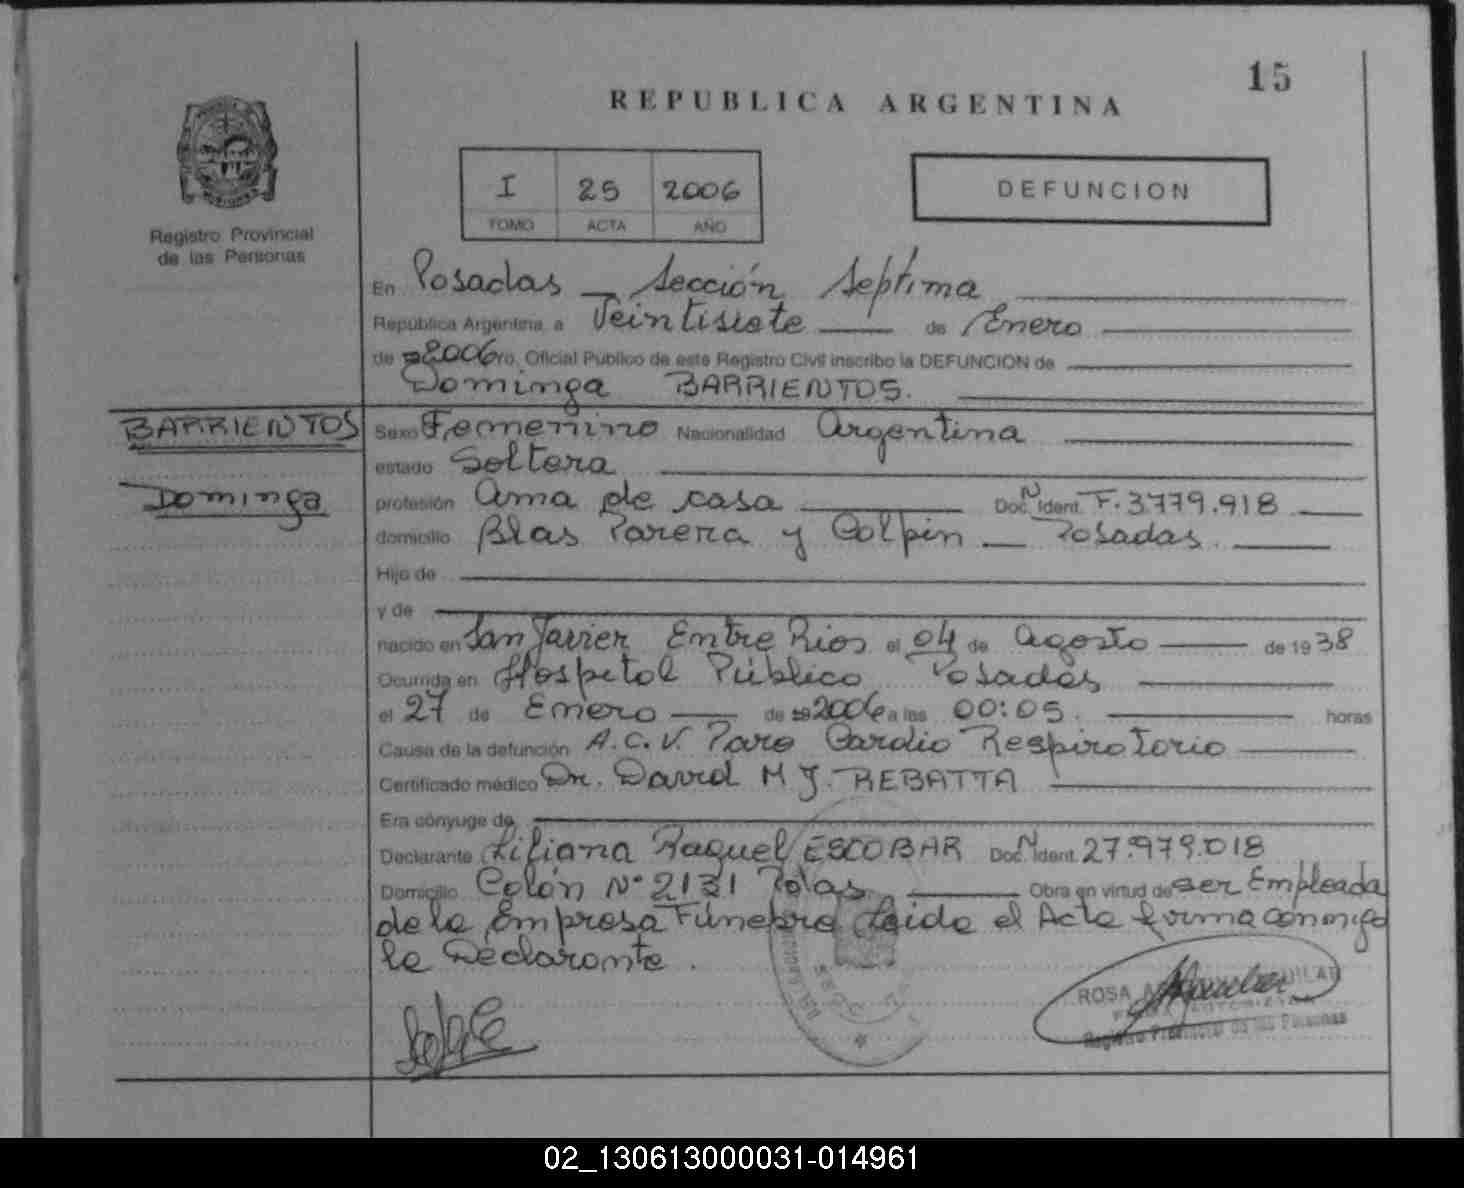 15
REPUBLICA ARGENTINA
I 25 2006
TOMO ACTA AÑO
DEFUNCION
Registro Provincial
de las Personas
En Posadas Sección Septima
República Argentina, a Veintisiete de Enero
de 2006 ro, Oficial Público de este Registro Civil inscribo la DEFUNCION de
Dominga BARRIENTOS.
BARRIENTOS
Dominga
Sexo Femenino Nacionalidad Argentina
estado Soltera
profesión Ama de casa Doc. N Ident. F. 3.779.918
domicilio Blas Parera y Colpin Posadas.
Hijo de
y de
nacido en San Javier Entre Rios el 04 de Agosto de 1938
Ocurrida en Hospital Público Posadas
el 27 de Enero de 2006 a las 00:05. horas
Causa de la defunción A.C.V. Paro Cardio Respiratorio
Certificado médico Dr. David M J. REBATTA
Era cónyuge de
Declarante Liliana Raquel ESCOBAR Doc. N Ident. 27.979.018
Domicilio Colón N° 2131 Pdas. Obra en virtud de ser Empleada
de la Empresa Fúnebre Leida el Acta firma conmigo
la Declarante.
ROSA
Registro Provincial de las Personas
02_130613000031-014961